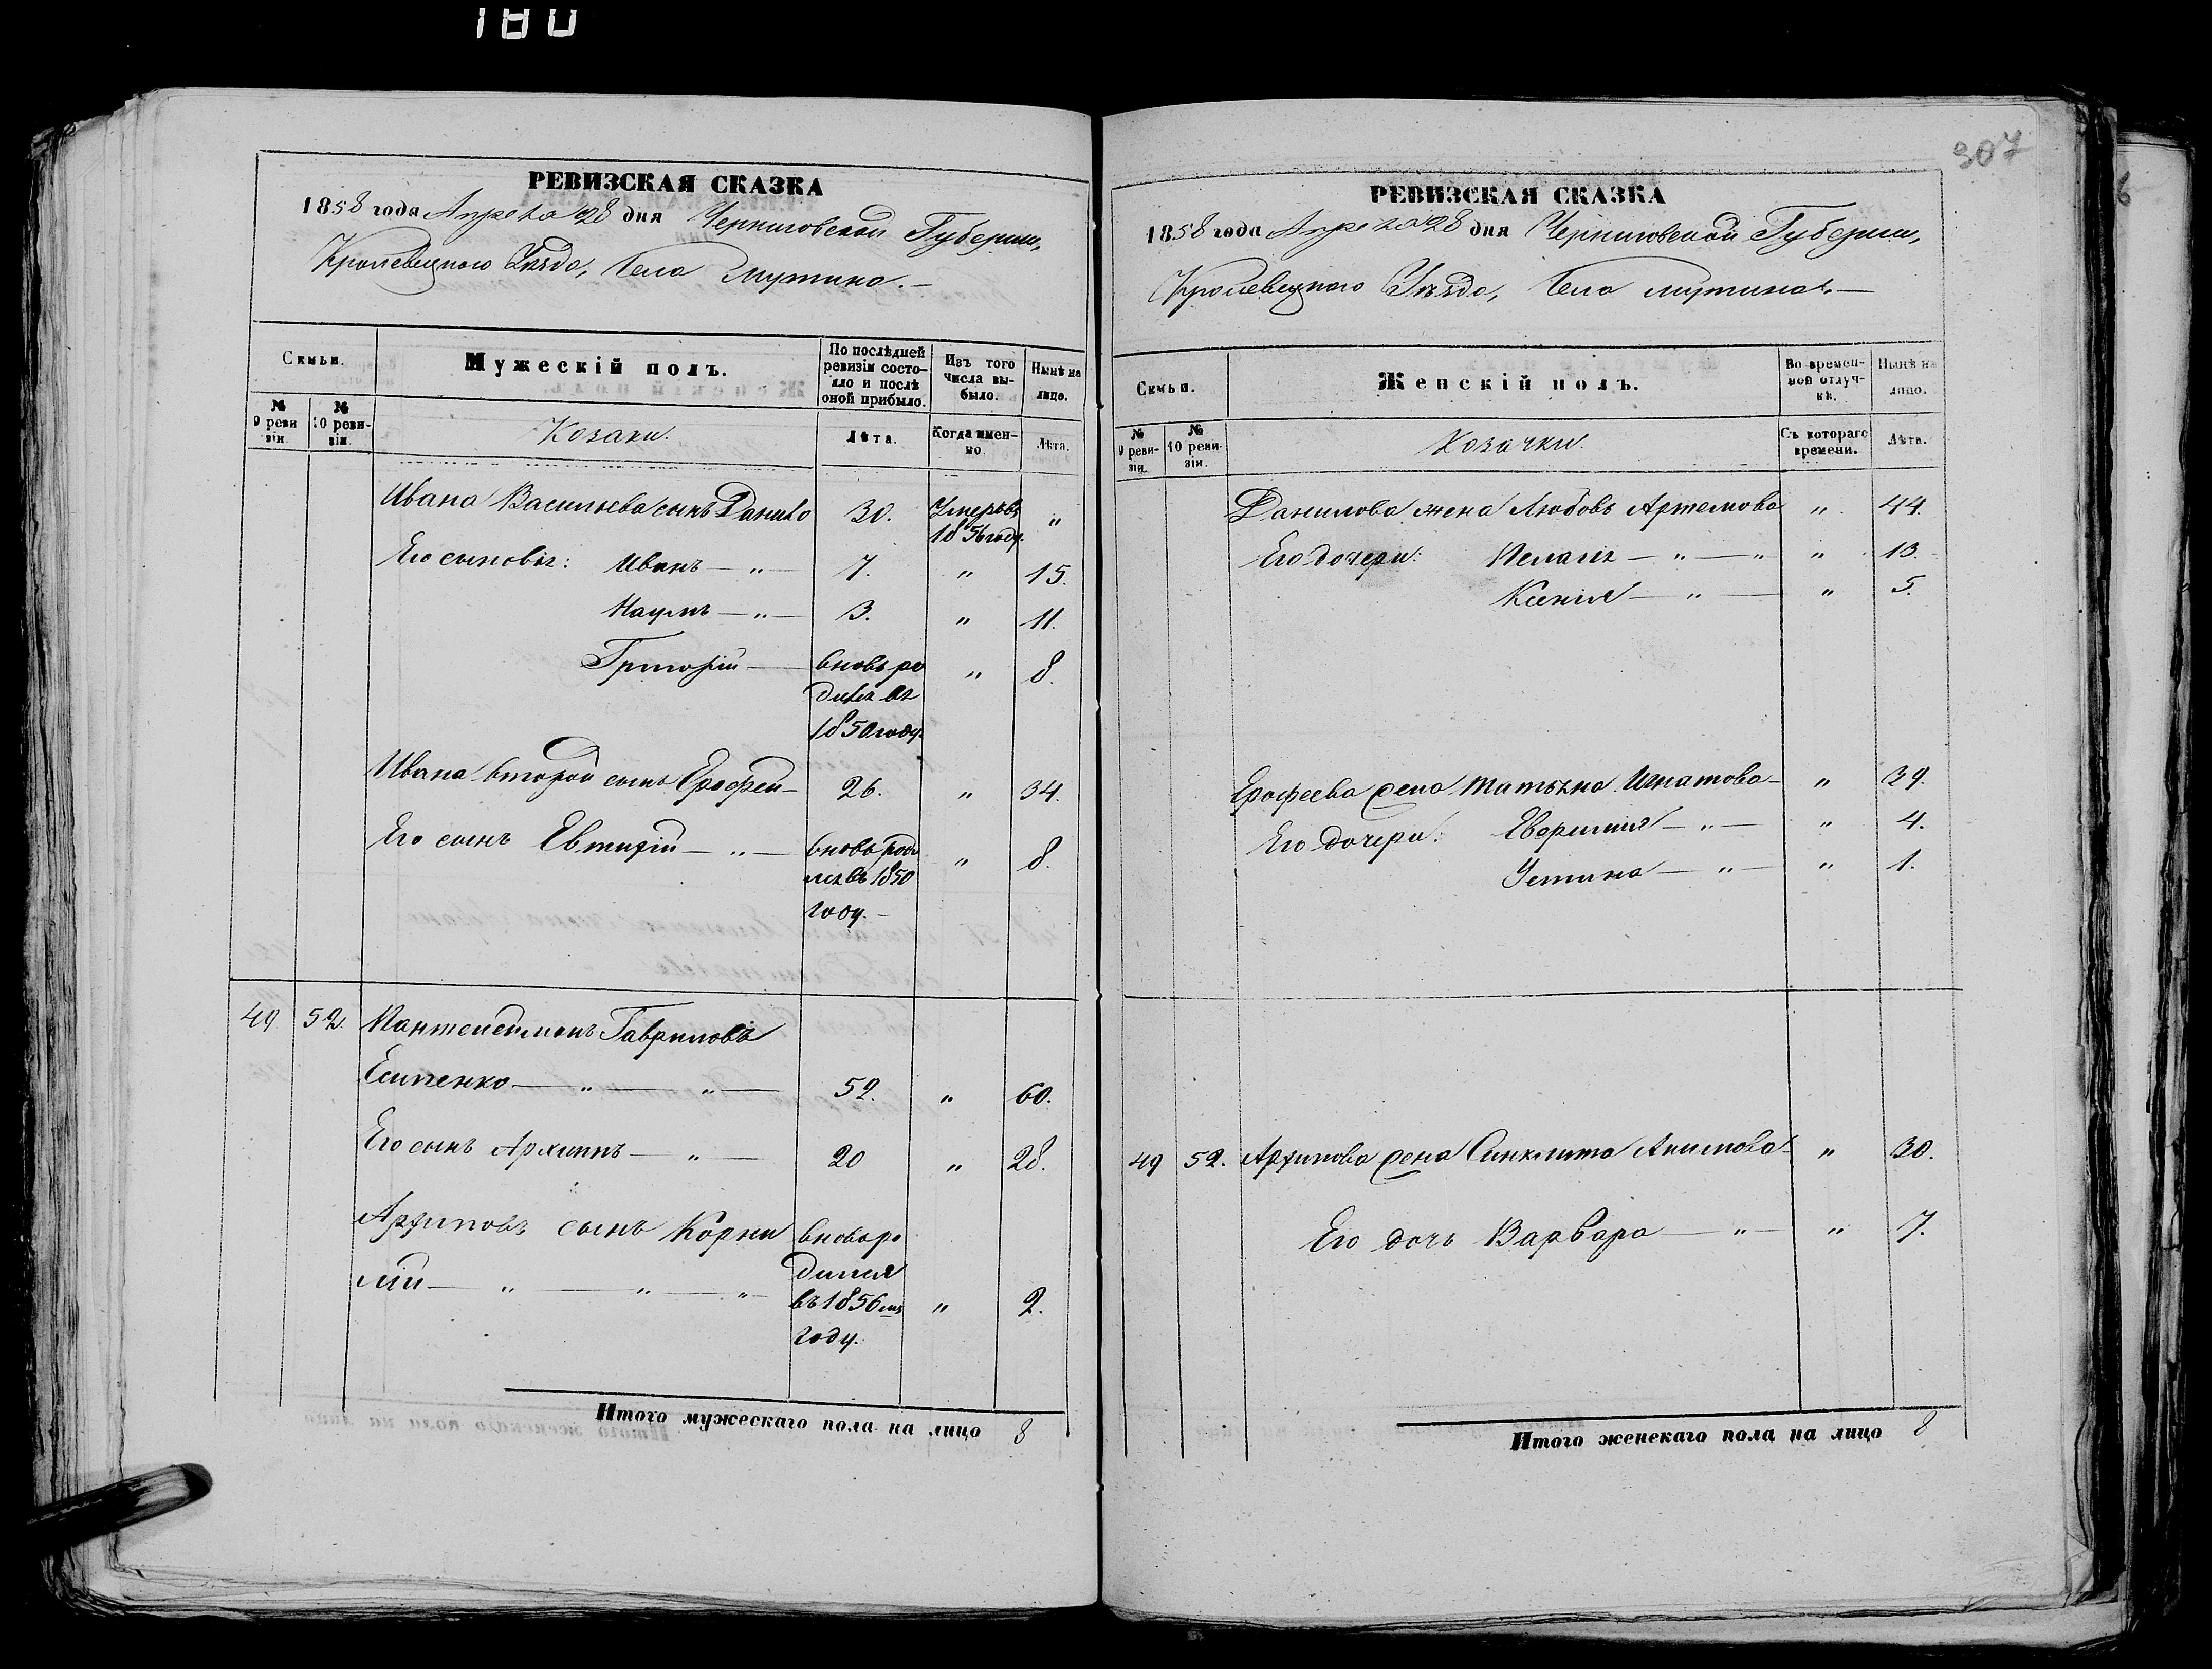 180
РЕВИЗСКАЯ СКАЗКА
1858 года Апреля 28 дня Черниговской Губерніи,
Кролевецкого Уезда, Села Мутина.—
Семьи.
№ 9 ревизіи.
№ 10 ревизіи.
Мужескій полъ.
Козаки.
По послѣдней ревизіи состояло и послѣ оной прибыло.
Лѣта.
Изъ того числа выбыло.
Когда именно.
Нынѣ на лицо.
Лѣта.
Ивана Васильева сынъ Данило 30. Умеръ въ 1856 году "
Его сыновья: Иванъ — " — 7. " 15.
Наумъ — " — 3. " 11.
Григорій — вновь родился въ 1850 году. " 8.
Ивана второй сынъ Ерофей — 26. " 34.
Его сынъ Евтихій — " — вновь родился въ 1850 году.— " 8.
49 52. Пантелеймонъ Гавриловъ
Есипенко — " — " — 52. " 60.
Его сынъ Архипъ — " — 20 " 28.
Архиповъ сынъ Корни
лій — " — " — " — вновь родился въ 1856мъ году. " 2.
Итого мужескаго пола на лицо 8
307
РЕВИЗСКАЯ СКАЗКА
1858 года Апреля 28 дня Черниговской Губерніи,
Кролевецкого Уезда, Села Мутина.—
Семьи.
№ 9 ревизіи.
№ 10 ревизіи.
Женскій полъ.
Козачки.
Во временной отлучкѣ.
Съ котораго времени.
Нынѣ на лицо.
Лѣта.
Данилова жена Любовь Артемова " 44.
Его дочери: Пелагія — " — " " 13.
Ксенія — " — " 5.
Ерофеева жена Татьяна Игнатова — " 39.
Его дочери: Евфимія — " — " 4.
Устина — " — " 1.
49 52. Архипова жена Синклита Акимова — " 30.
Его дочь Варвара — " — " 7.
Итого женскаго пола на лицо 8